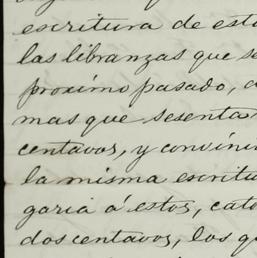 escritura de est
las libranzas que se
proximo pasado, a
mas que sesenta
centavos, y convini
la misma escritu
garia á estos, cato
dos centavos, los qu